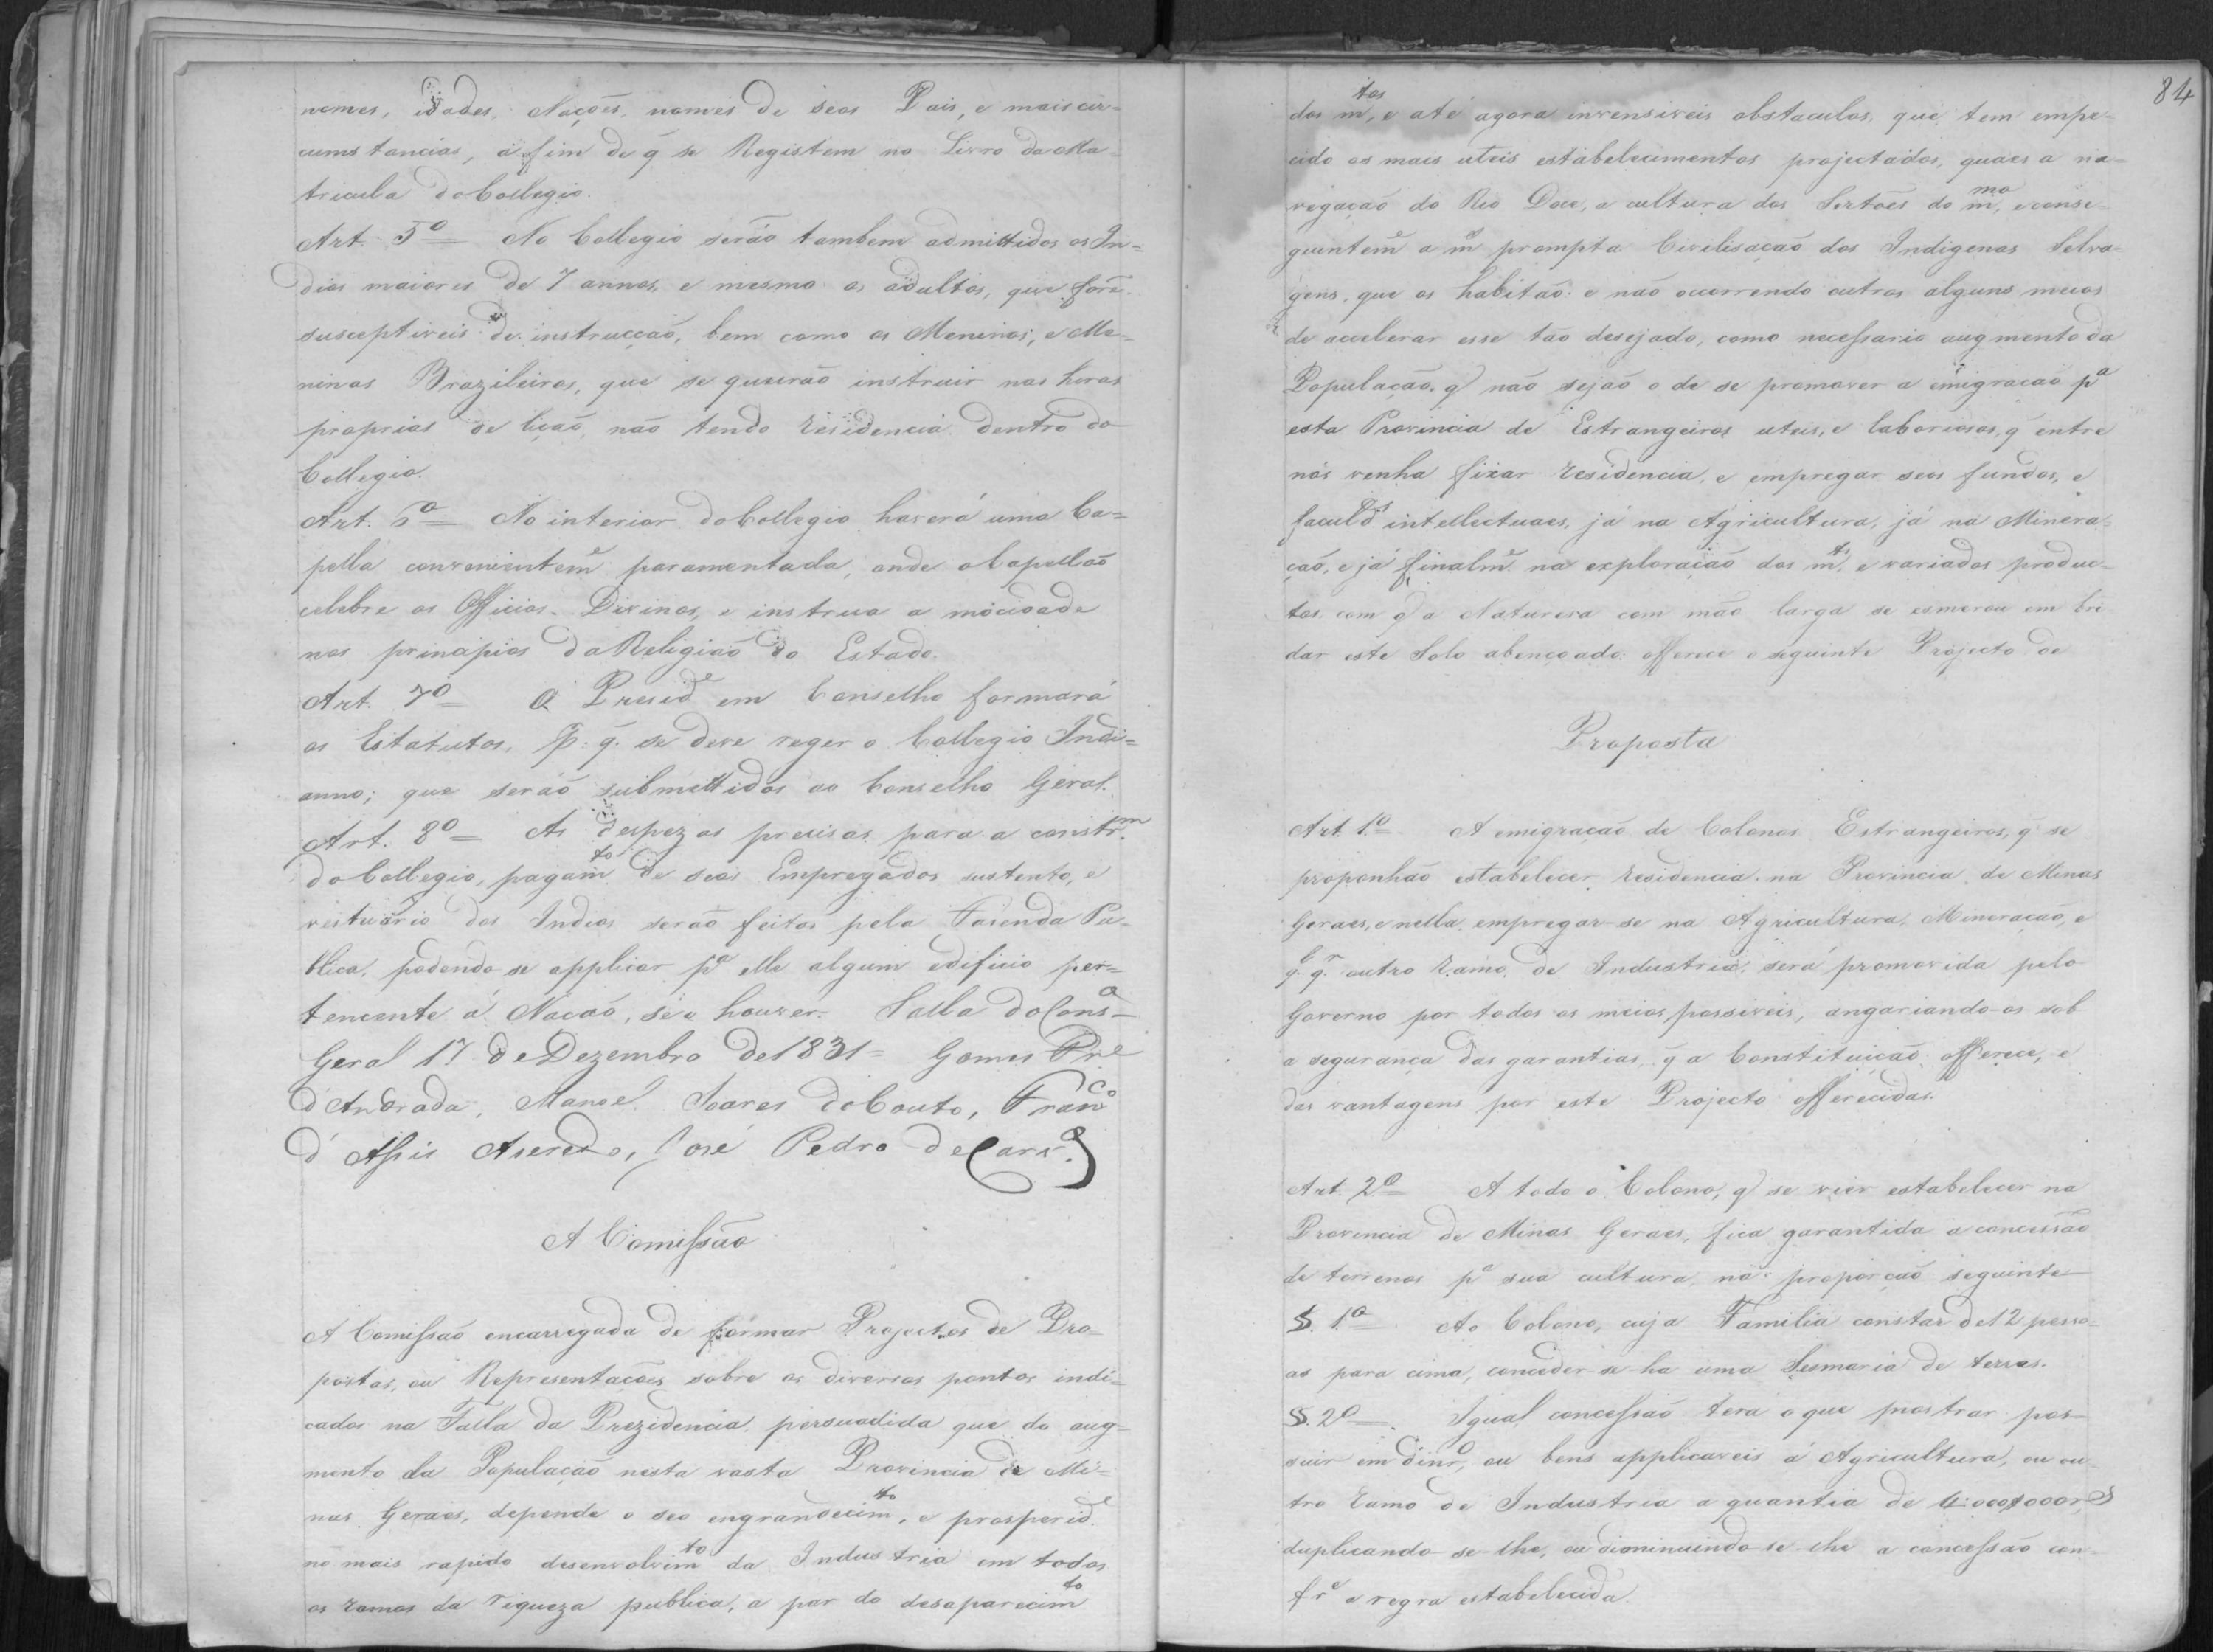 nomes, idades, Nações, nomes de seos Pais, e mais cir=
cumstancias, afim de q̃ se Registem no Livro da Ma=
tricula do Collegio.
Art. 5º = No Collegio serão tambem admittidos os In=
dios maiores de 7 annos, e mesmo os adultos, que forẽ
susceptiveis de instrucção, bem como os Meninos, e Me=
ninas Brazileiros, que se queirão instruir nas horas
proprias de lição, não tendo residencia dentro do
Collegio.
Art. 6º = No interior do Collegio haverá uma Ca=
pella convenientem.e paramentada, onde o Capellão
celebre os Officios Divinos, e instrua a mocidade
nos principios da Religião do Estado.
Art. 7º = O Presid.e em Conselho formará
os Estatutos, p. q̃. se deve reger o Collegio Indi=
anno; que serão submettidos ao Conselho Geral.
Art. 8º = As despezas precisas para a constr.m
do Collegio, pagam.to de seos Empregados sustento, e
vestuario dos Indios serão feitas pela Fasenda Pu=
blica, podendo se applicar p.a elle algum edificio per=
tencente á Nação, se o houver. Salla do Cons.o
Geral 17 de Dezembro de 1831 = Gomes Fre
d'Andrada, Manoel Soares do Couto, Franco
d'Assis Aseredo, José Pedro de Carv.o
A Comissão
A Comissão encarregada de formar Projectos de Pro=
postas, ou Representações sobre os diversos pontos indi=
cados na Falla da Prezidencia, persuadida que do aug=
mento da População nesta vasta Provincia de Mi=
nas Geraes, depende o seo engrandecim.to, e prosperid.e
no mais rapido desenvolvim.to da Industria em todos
os ramos da riqueza publica, a par do desaparecim.to
84
dos m.tos, e até agora invensiveis obstaculos, que tem empe=
cido os mais uteis estabelecimentos projectados, quaes a na=
vegação do Rio Doce, a cultura dos Sertões do m.mo, e conse=
guintem.e a m.s prompta Civilisação dos Indigenas Selva=
gens, que os habitão: e não occorrendo outros alguns meios
de accelerar esse tão desejado, como necessario augmento da
População, q̃ não sejão o de se promover a emigração p.a
esta Provincia de Estrangeiros uteis, e laboriosos, q̃ entre
nós venha fixar residencia, e empregar seos fundos, e
facul.des intellectuaes, já na Agricultura, já na Minera=
ção, e já finalm.e na exploração dos m.tos, e variados produc=
tos, com q̃ a Naturesa com mão larga se esmerou em bri
dar este Solo abençoado: offerece o seguinte Projecto de
Proposta
Art. 1º = A emigração de Colonos Estrangeiros, q̃ se
proponhão estabelecer residencia na Provincia de Minas
Geraes, e nella, empregar-se na Agricultura, Mineração, e
q. q.r outro ramo de Industria, será promovida pelo
Governo por todos os meios possiveis, angariando-os sob
a segurança das garantias, q̃ a Constituição offerece, e
das vantagens por este Projecto offerecidas.
Art. 2º = A todo o Colono, q̃ se vier estabelecer na
Provincia de Minas Geraes, fica garantida a concessão
de terrenos p.a sua cultura, na proporção seguinte
§. 1º = Ao Colono, cuja Familia constar de 12 pesso=
as para cima, conceder-se-ha uma Sesmaria de terras.
§. 2º = Igual concessão terá o que mostrar pos=
suir em dinr.o, ou bens applicaveis á Agricultura, ou ou=
tro ramo de Industria a quantia de 4:000$000rs
duplicando-se-lhe, ou diominuindo-se-lhe a concessão con
fr.e a regra estabelecida.